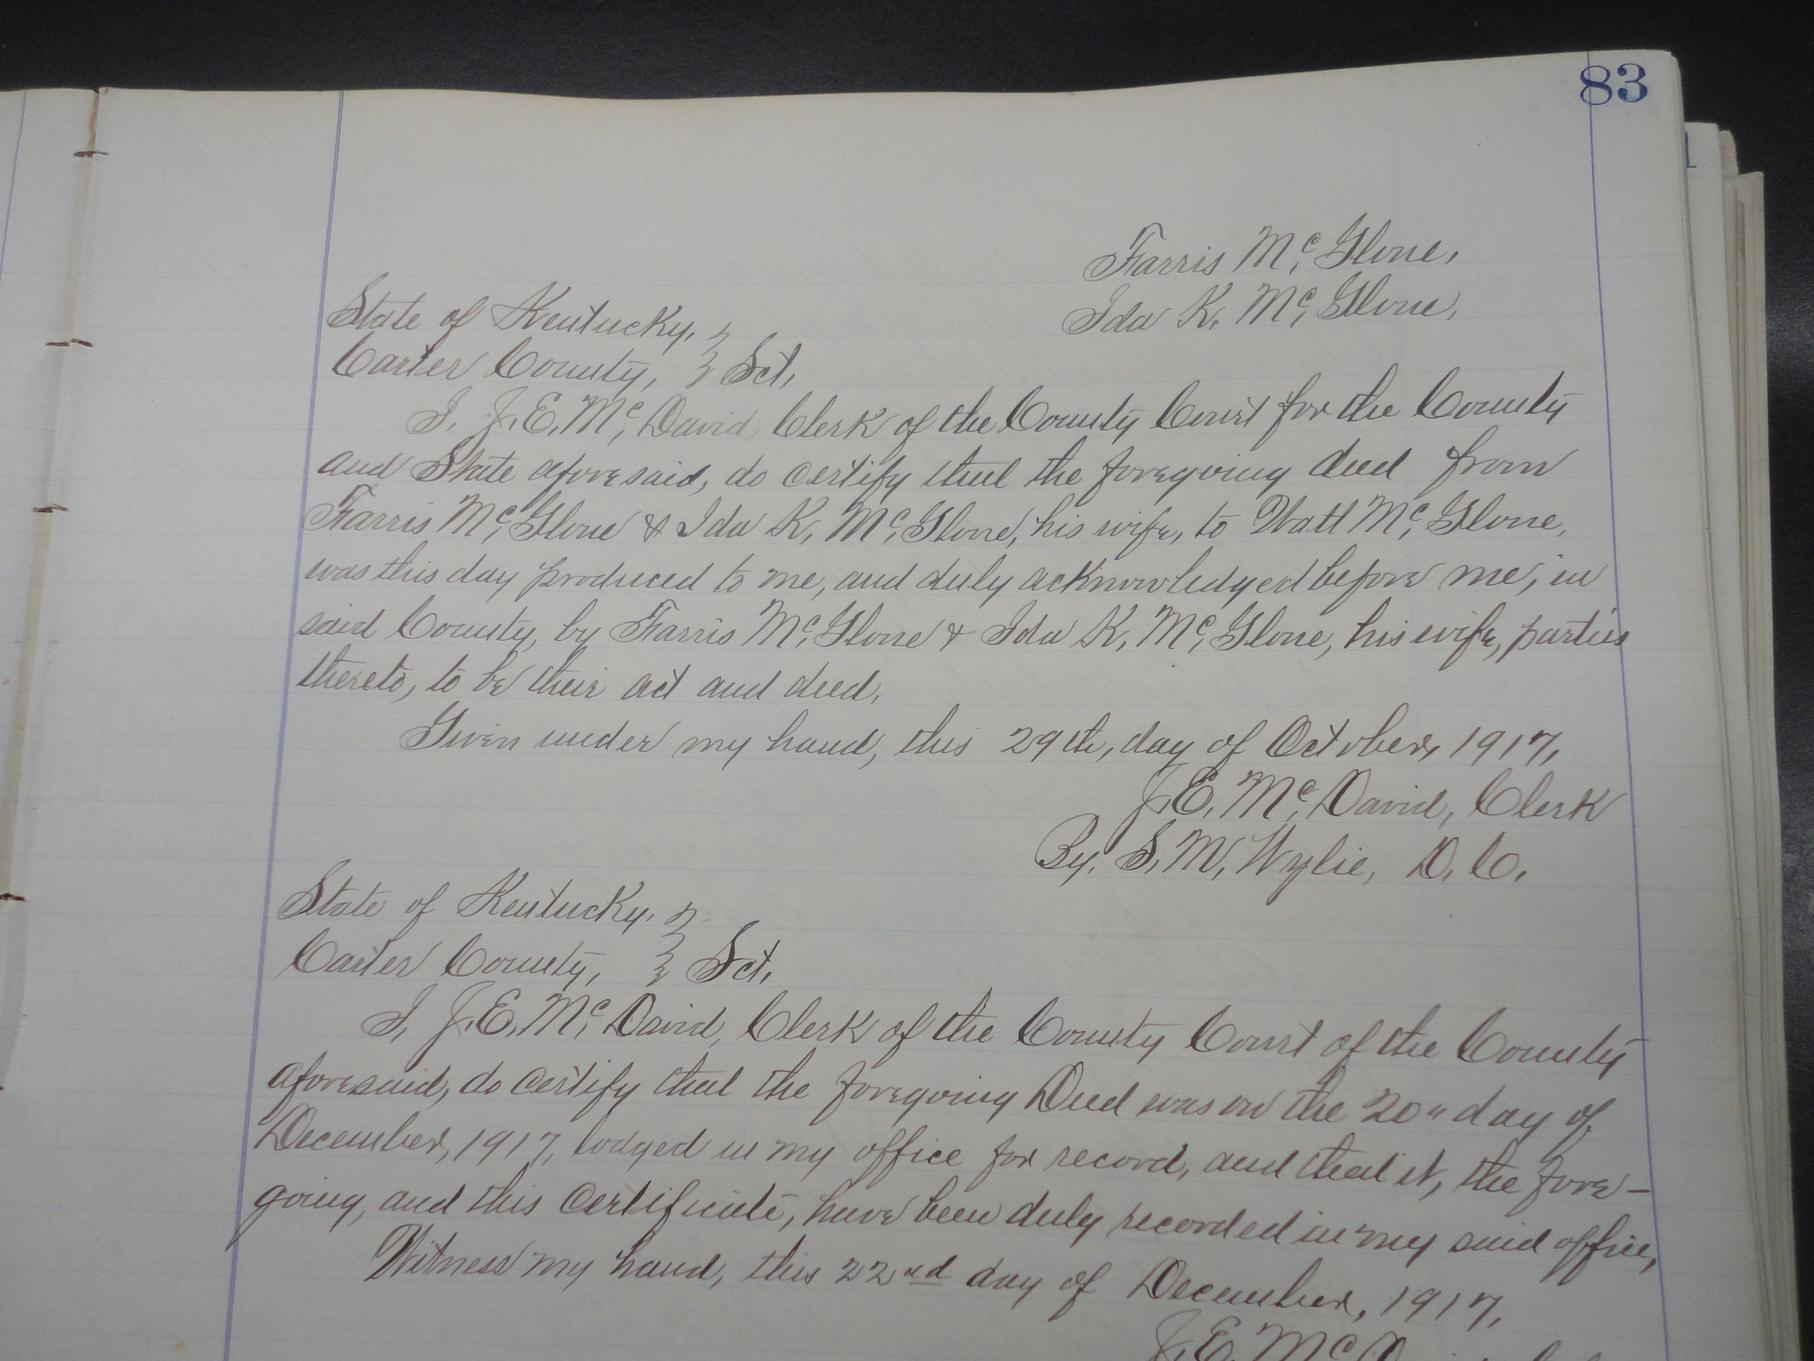 83
Farris Mc. Glone,
Ida K. Mc. Glone,
State of Kentucky, }
Carter County, } Sct.
I, J. E. Mc. David, Clerk of the County Court for the County
and State aforesaid, do certify that the foregoing deed from
Farris Mc. Glone & Ida K. Mc. Glone, his wife, to Watt Mc. Glone,
was this day produced to me, and duly acknowledged before me, in
said County, by Farris Mc. Glone & Ida K. Mc. Glone, his wife, parties
thereto, to be their act and deed.
Given under my hand, this 29th, day of October, 1917,
J. E. Mc. David, Clerk
By. S. M. Wylie, D. C.
State of Kentucky, }
Carter County, } Sct.
I, J. E. Mc. David, Clerk of the County Court of the County
aforesaid, do certify that the foregoing Deed was on the 20" day of
December, 1917, lodged in my office for record, and that it, the fore-
going, and this certificate, have been duly recorded in my said office,
Witness my hand, this 22nd day of December, 1917,
J. E. Mc David